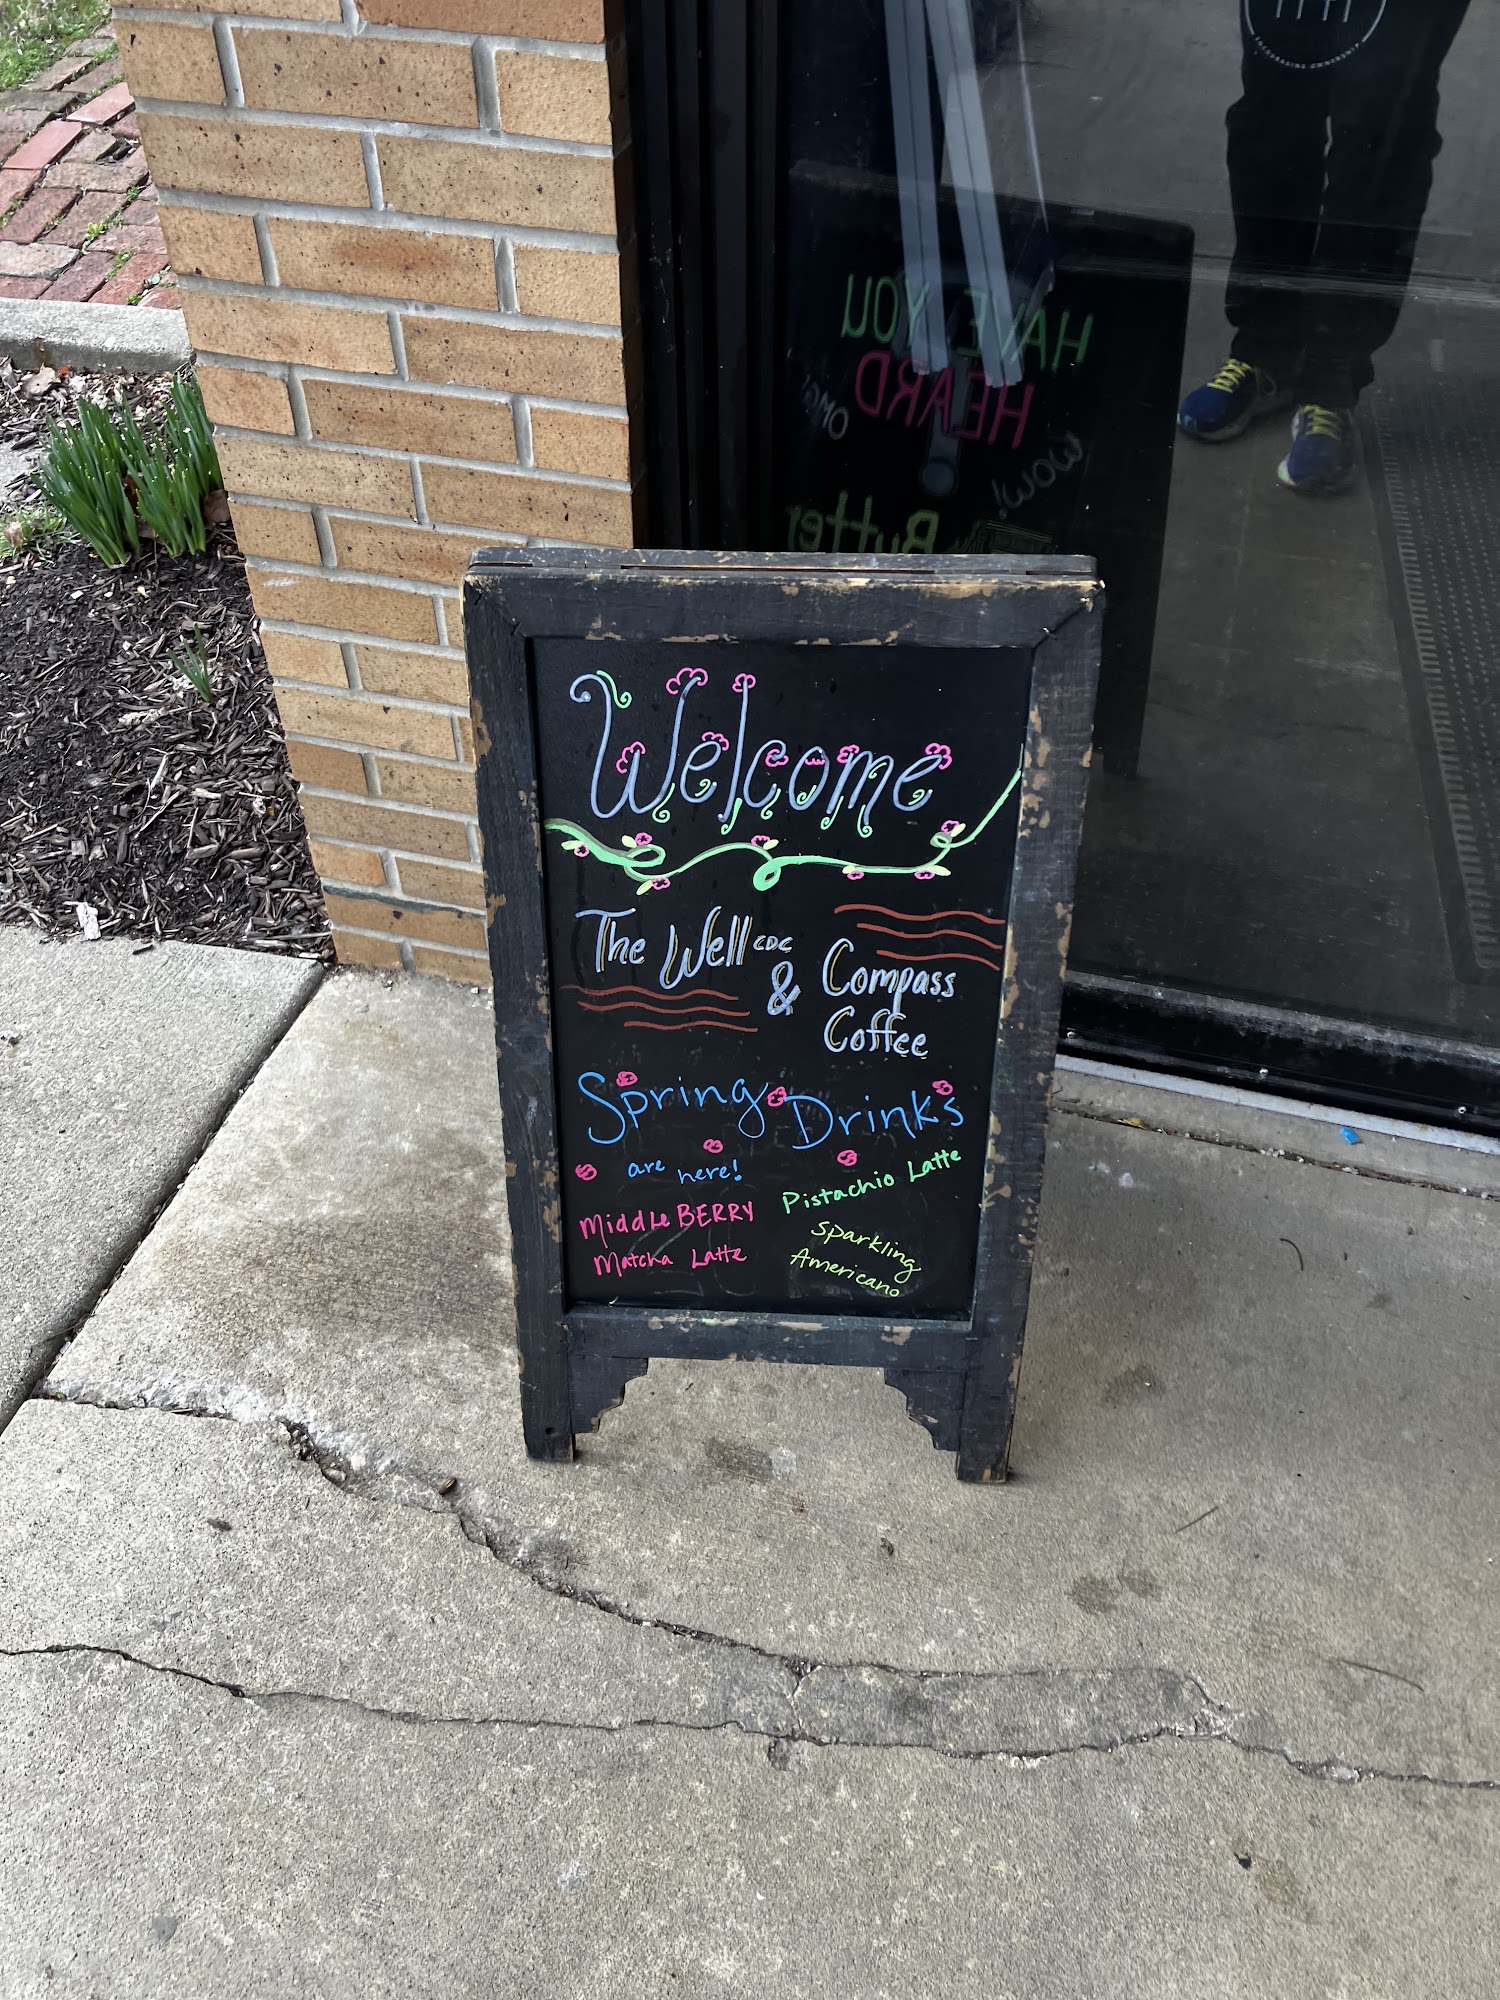 ENCOURAGING OWNERSHIP
HAVE YOU
HEARD
OMG!
WOW!
Butter
Welcome
The Well CDC
& Compass
Coffee
Spring Drinks
are here!
Pistachio Latte
Middle BERRY
Matcha Latte
Sparkling
Americano